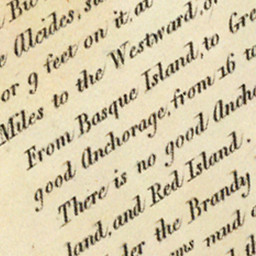 Alcides,
or 9 feet on it, at
Miles to the Westward, or
From Basque Island, to Gre
good Anchorage, from 16 to
There is no good Ancho
land, and Red Island.
the Brandy
mud